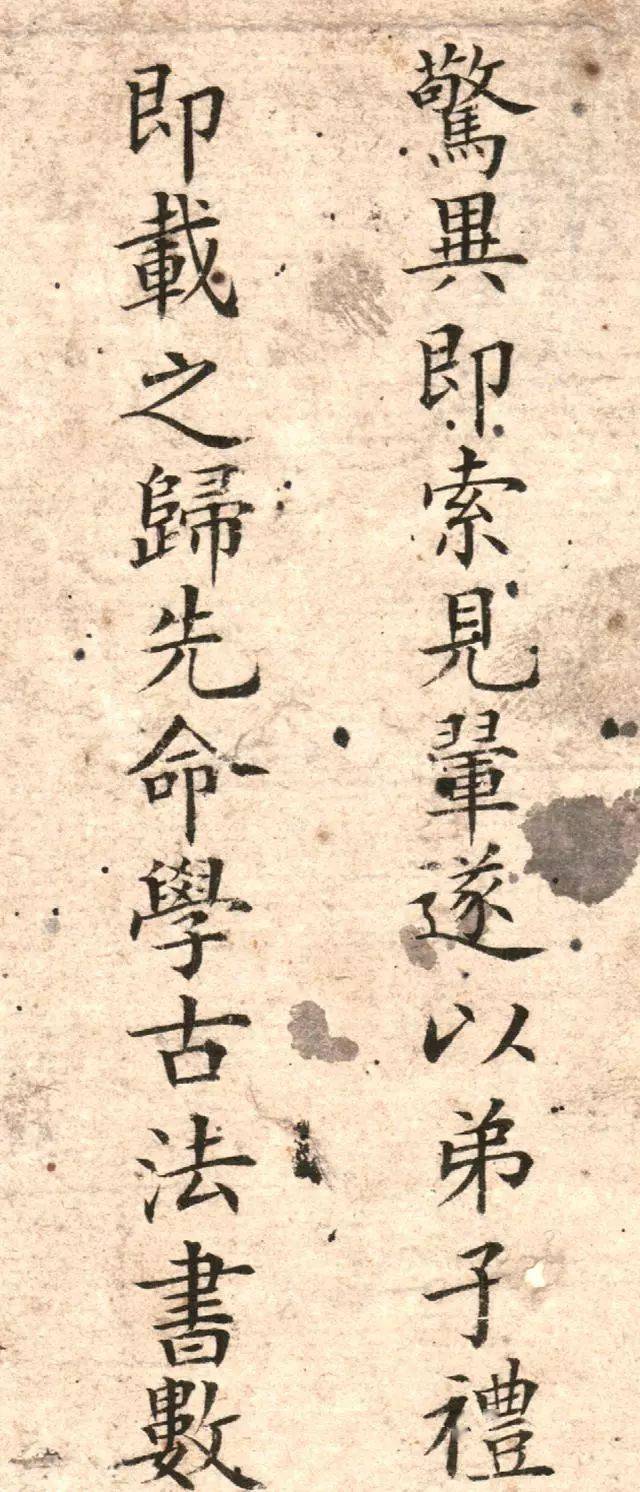 驚異即索見輩遂以弟子禮
即載之歸先命學古法書數